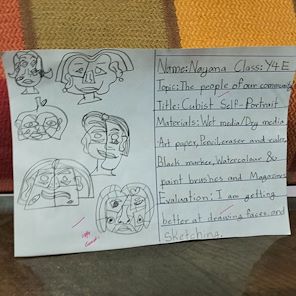 Name: Nayana Class: Y4E
Topic: The people of our community
Title: Cubist Self-Portrait
Materials: Wet media/Dry media
Art paper, Pencil, eraser and ruler,
Black marker, Watercolour &
paint brushes and Magazines
Evaluation: I am getting
better at drawing faces and
sketching.